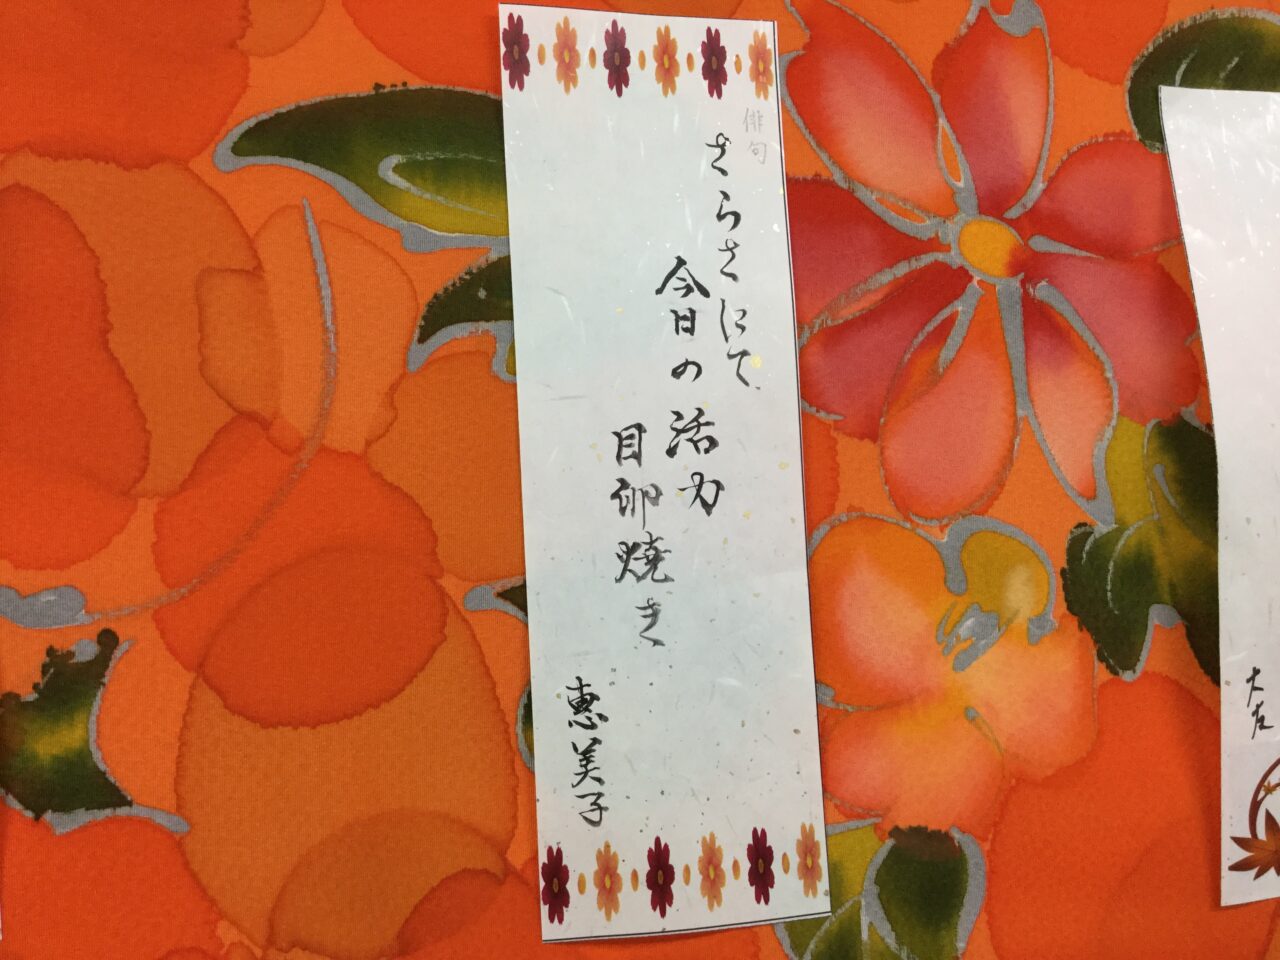 俳句
さらさにて
今日の活力
目卵焼き
恵美子
大友